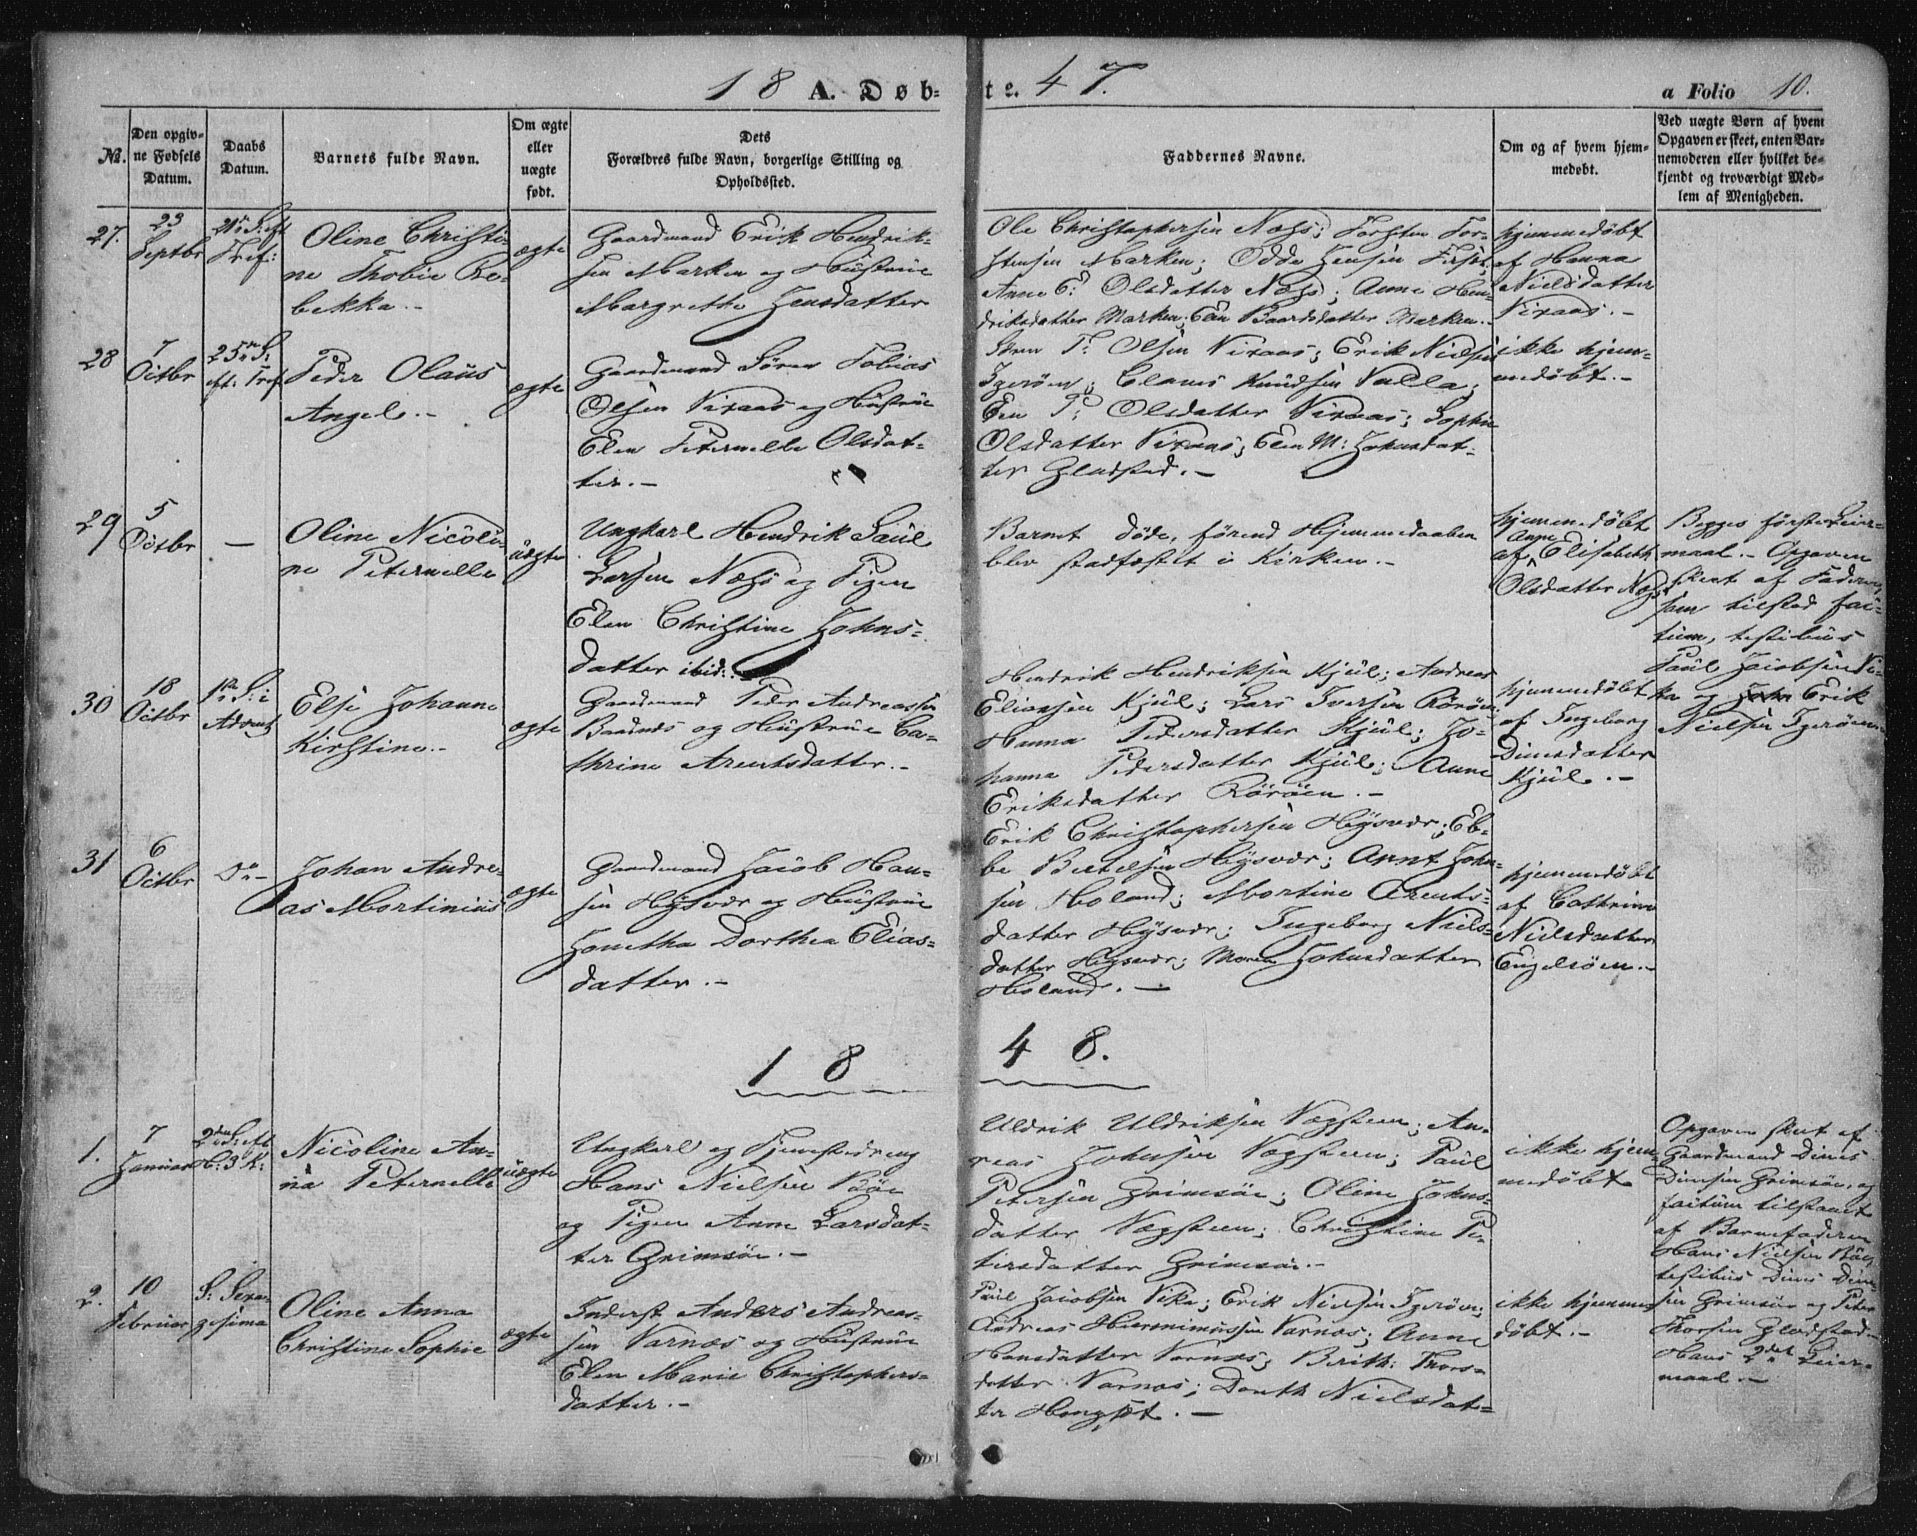 18 A. Døb-
te. 47.
a Folio 10.
No.
Den opgiv-
ne Fødsels
Datum.
Daabs
Datum.
Barnets fulde Navn.
Om ægte
eller
uægte
født.
Dets
Forældres fulde Navn, borgerlige Stilling og
Opholdssted.
Faddernes Navne.
Om og af hvem hjem-
medøbt.
Ved uægte Børn af hvem
Opgaven er skeet, enten Bar-
nemoderen eller hvilket be-
kjendt og troværdigt Med-
lem af Menigheden.
27.
23
Septbr
21de S: eft
Tref:
Oline Christi-
ne Thobie Re-
bekka.-
ægte
Gaardmand Erik Hendrik-
sen Marken og Hustrue
Margrethe Jensdatter
Ole Christophersen Næss; Torsten Tor-
stensen Marken; Odde Jensen
Anne E: Olsdatter Næss; Anne Hen-
driksdatter Marken; Elen Baardsdatter Marken.-
hjemmedøbt
af Hanna
Nielsdatter
Vixaas.-
28
7
Octbr
25de S:
eft: Tref
Peder Olaus
Angel.-
ægte
Gaardmand Sören Tobias
Olsen Vixaas og Hustrue
Elen Peternelle Olsdat-
ter.-
Sten T: Olsen Vixaas; Erik Nielsen
Igerøen; Claus Knudsen Valla;
Elen P: Olsdatter Vixaas; Sophie
Olsdatter Vixaas; Elen M: Johnsdat-
ter Gladstad.-
ikke hjem-
medøbt.-
29
5
Octbr
-
Oline Nicoli-
ne Peternelle
uægte
Ungkarl Hendrik Paul
Larsen Næss og Pigen
Elen Christine Johns-
datter ibid:
Barnet døde, førend Hjemmedaaben
blev stadfæstet i Kirken.-
hjemmedøbt
Anne
af Elisabeth
Olsdatter Næss
Begges første Leier-
maal.- Opgaven
skeet af Faderen,
som tilstod fac-
tum, testibus
Paul Jacobsen Vi-
ka og John Erik
Nielsen Igerøen.-
30
18
Octbr
1ste S: i
Advent
Else Johanne
Kirstine.-
ægte
Gaardmand Peder Andreassen
Baadnes og Hustrue Ca-
thrine Arentsdatter.-
Hendrik Hendriksen Kjul; Andreas
Eliassen Kjul; Lars Iversen Rörøen;
Hanna Pedersdatter Kjul; Jo-
hanna Pedersdatter Kjul; Anne
Eriksdatter Rörøen.-
hjemmedøbt
af Ingeborg
Dinesdatter
Kjul.-
31
6
Octbr
Do-
Johan Andre-
as Mortinius
ægte
Gaardmand Jacob Han-
sen Hysvær og Hustrue
Jonetha Dorthea Elias-
datter.-
Erik Christophersen Hysvær; Eb-
be Bertelsen Hysvær; Arnt John-
sen Holand; Mortine Arents-
datter Hysvær; Ingeborg Niels-
datter Hysvær; Maren Johnsdatter
Holand.-
hjemmedøbt
af Cathrine
Nielsdatter
Engelsøen.-
18
48.
1.
7
Januar
2den S: eft
H: 3 K:
Nicoline An-
na Peternelle
uægte
Ungkarl og Tjenestedreng
Hans Nielsen Böe
og Pigen Anne Larsdat-
ter Grimsöe.-
Uldrik Uldriksen Vægsteen; An-
reas Johnsen Vægsteen; Paul
Petersen Grimsöe; Oline Johns-
datter Vægsteen; Christine Pe-
tersdatter Grimsöe.-
ikke hjem-
medøbt
Opgaven skeet af
Gaardmand Dines
Dinesen Grimsöe, og
factum tilstaaet
af Barnefaderen
Hans Nielsen Böe,
testibus Dines Dine-
sen Grimsöe og Peter
Thorsen Gladstad.
Hans 2det Leier-
maal.-
2.
10
Februar
S: Sexa-
gesima
Oline Anna
Christine Sophie
ægte
Inderst Anders Andreas-
sen Varnæs og Hustrue
Elen Marie Christophers-
datter.-
Paul Jacobsen Vika; Erik Nielsen Igerøen;
Andreas Hieronimussen Varnæs; Anne
Hansdatter Varnæs; Berith: Thors-
datter Varnæs; Dorth Nielsdat-
ter Hongset.-
ikke hjemme-
døbt.-